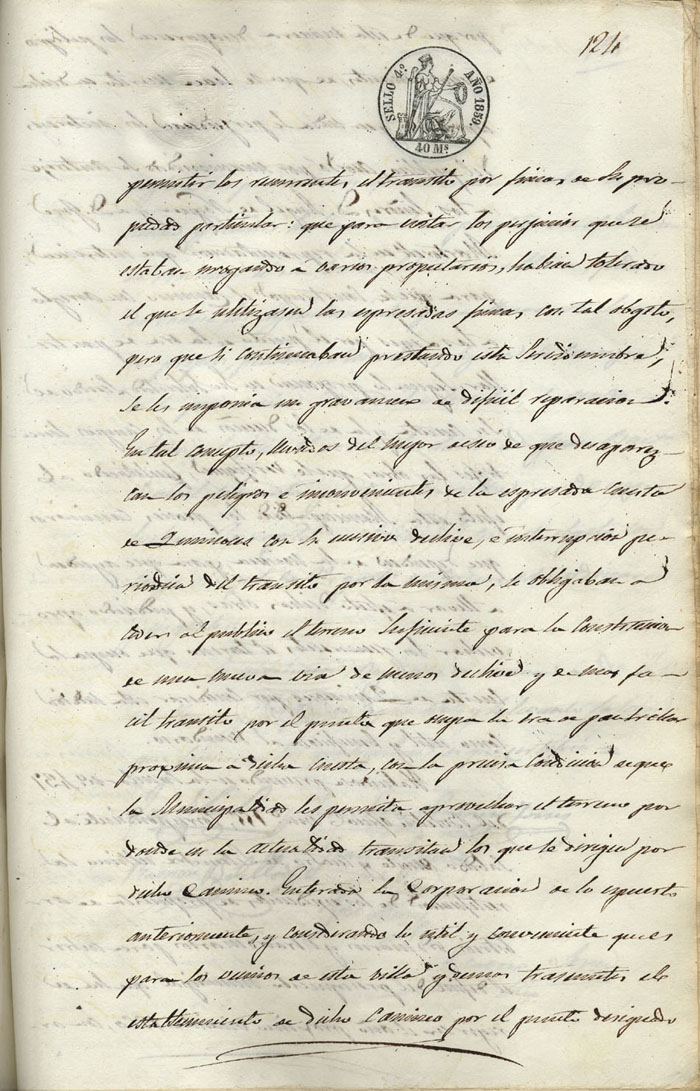 124
SELLO 4º AÑO 1859.
40 Ms.
permitir los recurrentes, el transito por fincas de su pro-
piedad particular: que para evitar los perjuicios que se
estaban irrogando a varios propietarios, habian tolerado
el que se utilizasen las espresadas fincas con tal obgeto,
pero que si continuaban prestando esta servidumbre,
se les imponia un gravamen de dificil reparacion.
En tal concepto, llevados del mejor deseo de que desaparez-
can los peligros e inconvenientes de la espresada cuesta
de con su escesivo declive, e interrupcion pe-
riodica del transito por la misma, se obligaban a
ceder al publico el terreno suficiente para la construccion
de una nueva via de menos declive y de mas fa-
cil transito por el punto que ocupa la era de pan trillar
proxima a dicha cuesta, con la precisa condicion de que
la Municipalidad les permita aprovechar el terreno por
donde en la actualidad transitan los que se dirigen por
dicho camino. Enterada la Corporacion de lo espuesto
anteriormente, y considerando lo util y conveniente que es
para los vecinos de esta villa y demas transeuntes el
establecimiento de dicho camino por el punto designado